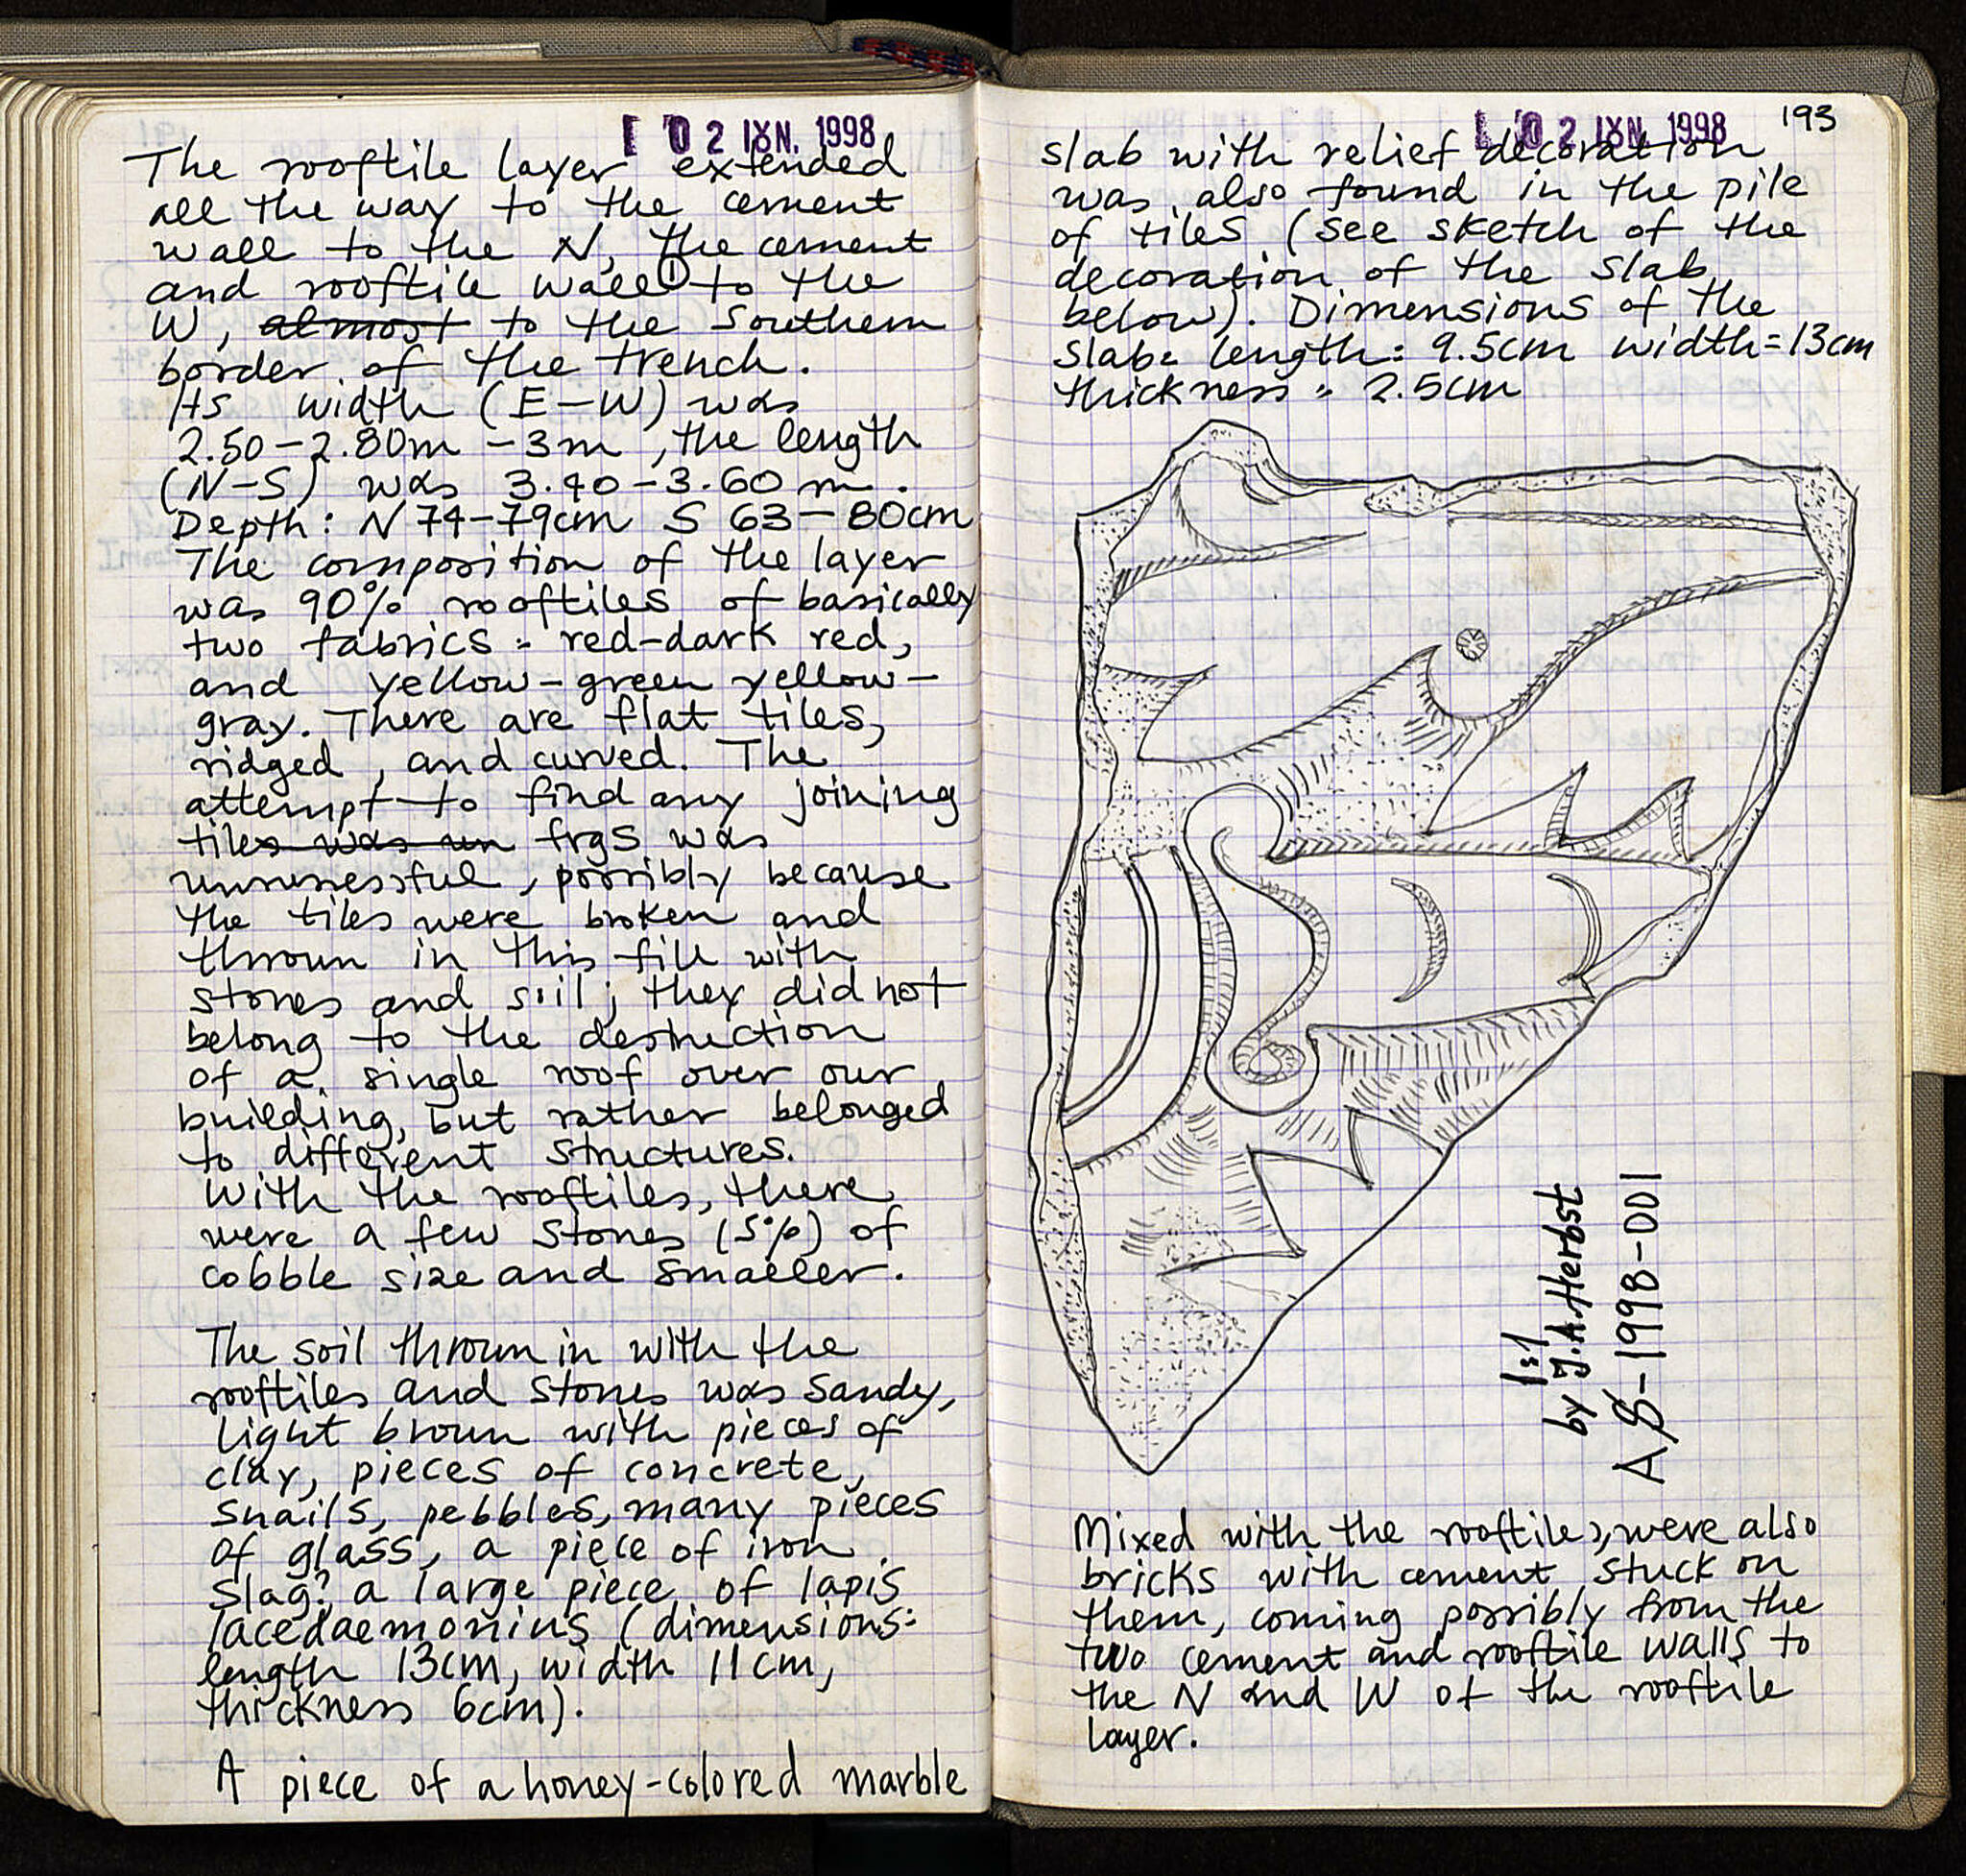 02 ΙΟΥΝ. 1998
The rooftile layer extended
all the way to the cement
wall to the N, the cement
and rooftile wall ① to the
W, almost to the Southern
border of the trench.
Its width (E-W) was
2.50-2.80m -3m, the length
(N-S) was 3.40-3.60m.
Depth: N 74-79cm S 63-80cm
The composition of the layer
was 90% rooftiles of basically
two fabrics: red-dark red,
and yellow-green yellow-
gray. There are flat tiles,
ridged, and curved. The
attempt to find any joining
tiles was un frgs was
unsuccessful, possibly because
the tiles were broken and
thrown in this fill with
stones and soil; they did not
belong to the destruction
of a single roof over our
building, but rather belonged
to different structures.
With the rooftiles, there
were a few stones (5%) of
cobble size and smaller.
The soil thrown in with the
rooftiles and stones was sandy,
light brown with pieces of
clay, pieces of concrete,
snails, pebbles, many pieces
of glass, a piece of iron
slag? a large piece of lapis
lacedaemonius (dimensions:
length 13cm, width 11cm,
thickness 6cm).
A piece of a honey-colored marble
02 ΙΟΥΝ. 1998
193
slab with relief decoration
was also found in the pile
of tiles (see sketch of the
decoration of the slab
below). Dimensions of the
slab: length: 9.5cm width=13cm
thickness: 2.5cm
1:1
by J.A. Herbst
AS-1998-001
Mixed with the rooftiles, were also
bricks with cement stuck on
them, coming possibly from the
two cement and rooftile walls to
the N and W of the rooftile
layer.